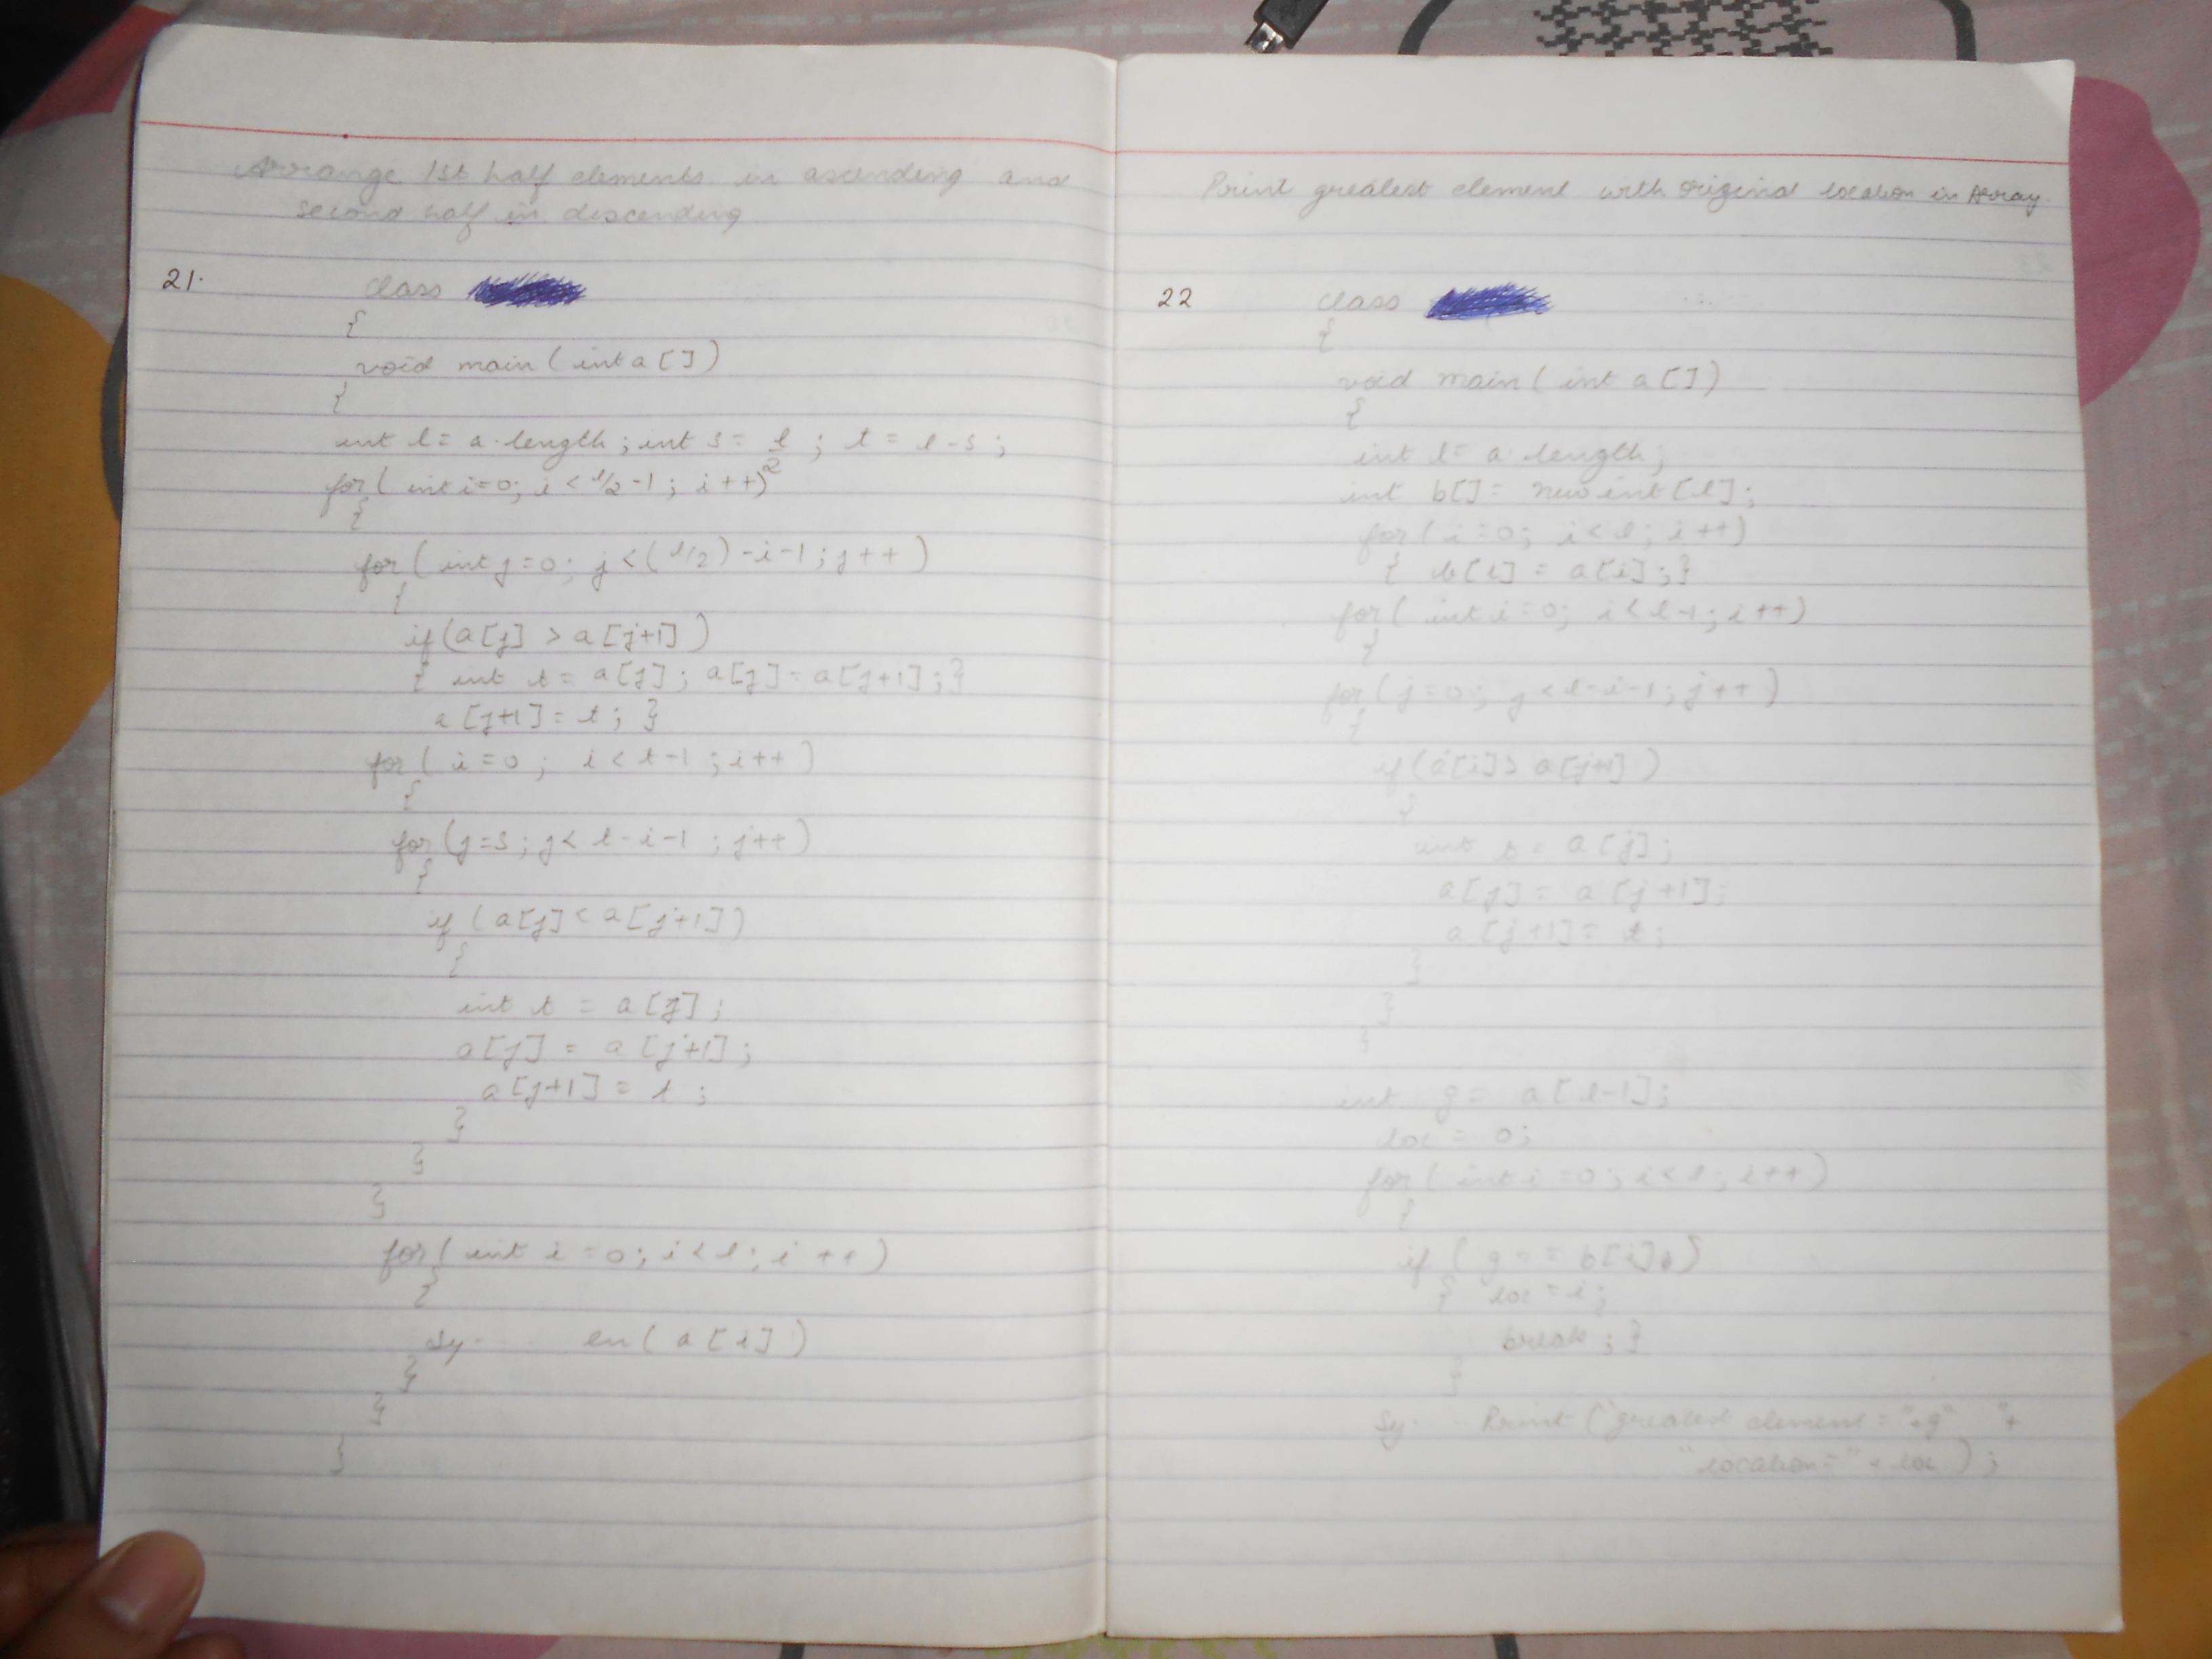 Arrange 1st half elements in ascending and
second half in descending
21.
class
{
void main ( int a [ ] )
{
int l = a.length ; int s = l/2 ; t = l - s ;
for ( int i=0; i < l/2 -1 ; i ++)
{
for ( int j=0; j < (l/2) -i -1 ; j ++ )
{
if (a[j] > a [j+1] )
{ int t = a[j] ; a[j] = a[j+1] ; }
a [j+1] = t ; }
for ( i = 0 ; i < t-1 ; i ++ )
{
for (j=s ; j < l - i -1 ; j++ )
{
if (a[j] < a [j+1])
{
int t = a [j] ;
a[j] = a [j+1] ;
a [j+1] = t ;
}
}
}
for ( int i = 0 ; i < l ; i ++)
{
Sy.. .. ln ( a [ i ] )
}
}
}
Print greatest element with original location in Array.
22
class
{
void main ( int a [ ] )
{
int l = a.length ;
int b[] = new int [l] ;
for ( i = 0 ; i < l ; i ++)
{ b[i] = a[i] ; }
for ( int i = 0; i < l -1 ; i ++)
{
for (j = 0 ; j < l-i-1 ; j++ )
{
if (a[i] > a [j+1] )
{
int t = a [j] ;
a[j] = a [j+1] ;
a [j+1] = t ;
}
}
}
int g = a [ l-1] ;
loc = 0 ;
for ( int i = 0 ; i < l ; i ++)
{
if ( g = = b[i] )
{ loc = i ;
break ; }
}
Sy.. .. Print ("greatest element = "+g" "+
"location = " + loc ) ;